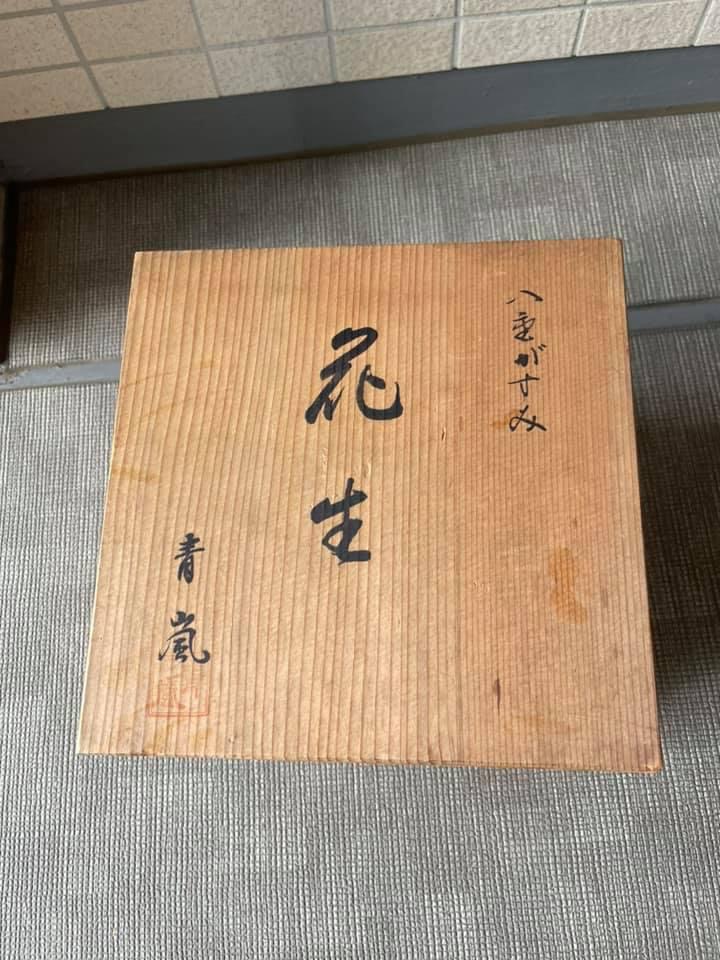 八重がすみ
花生
青嵐